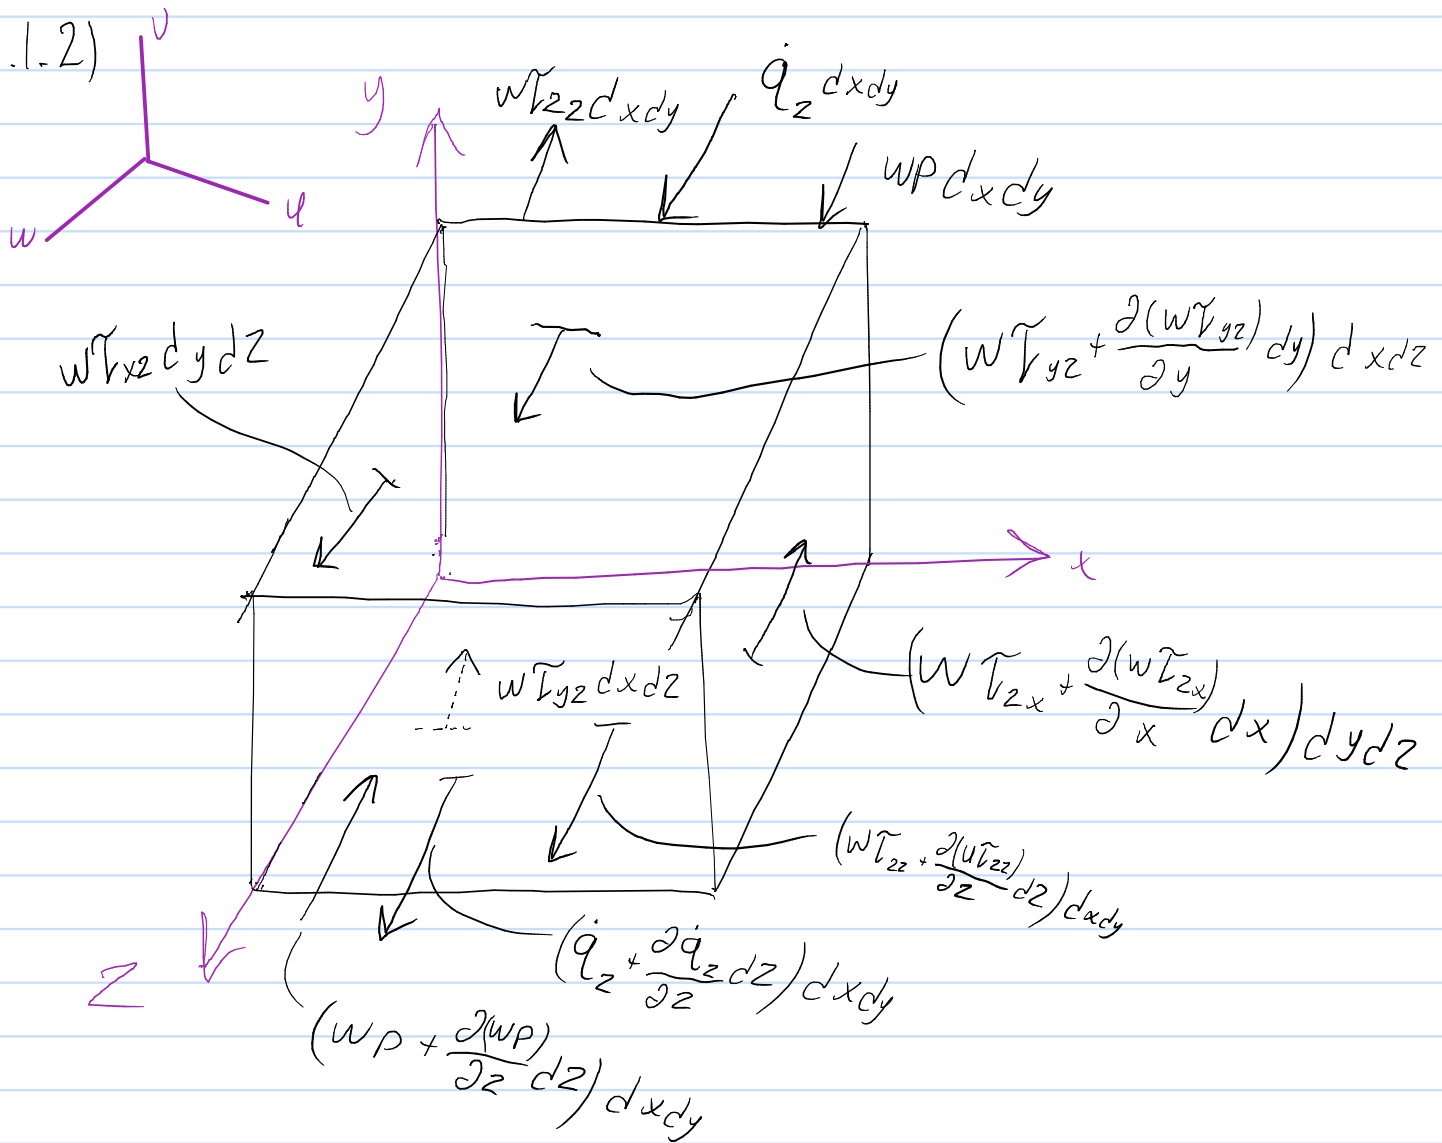 .1.2)
υ
u
w
y
wτzz dxdy
q̇z dxdy
wp dxdy
wτxz dydz
(wτyz + ∂(wτyz)/∂y dy) dxdz
x
wτyz dxdz
(wτzx + ∂(wτzx)/∂x dx) dydz
(wτzz + ∂(uτzz)/∂z dz) dxdy
z
(q̇z + ∂q̇z/∂z dz) dxdy
(wp + ∂(wp)/∂z dz) dxdy